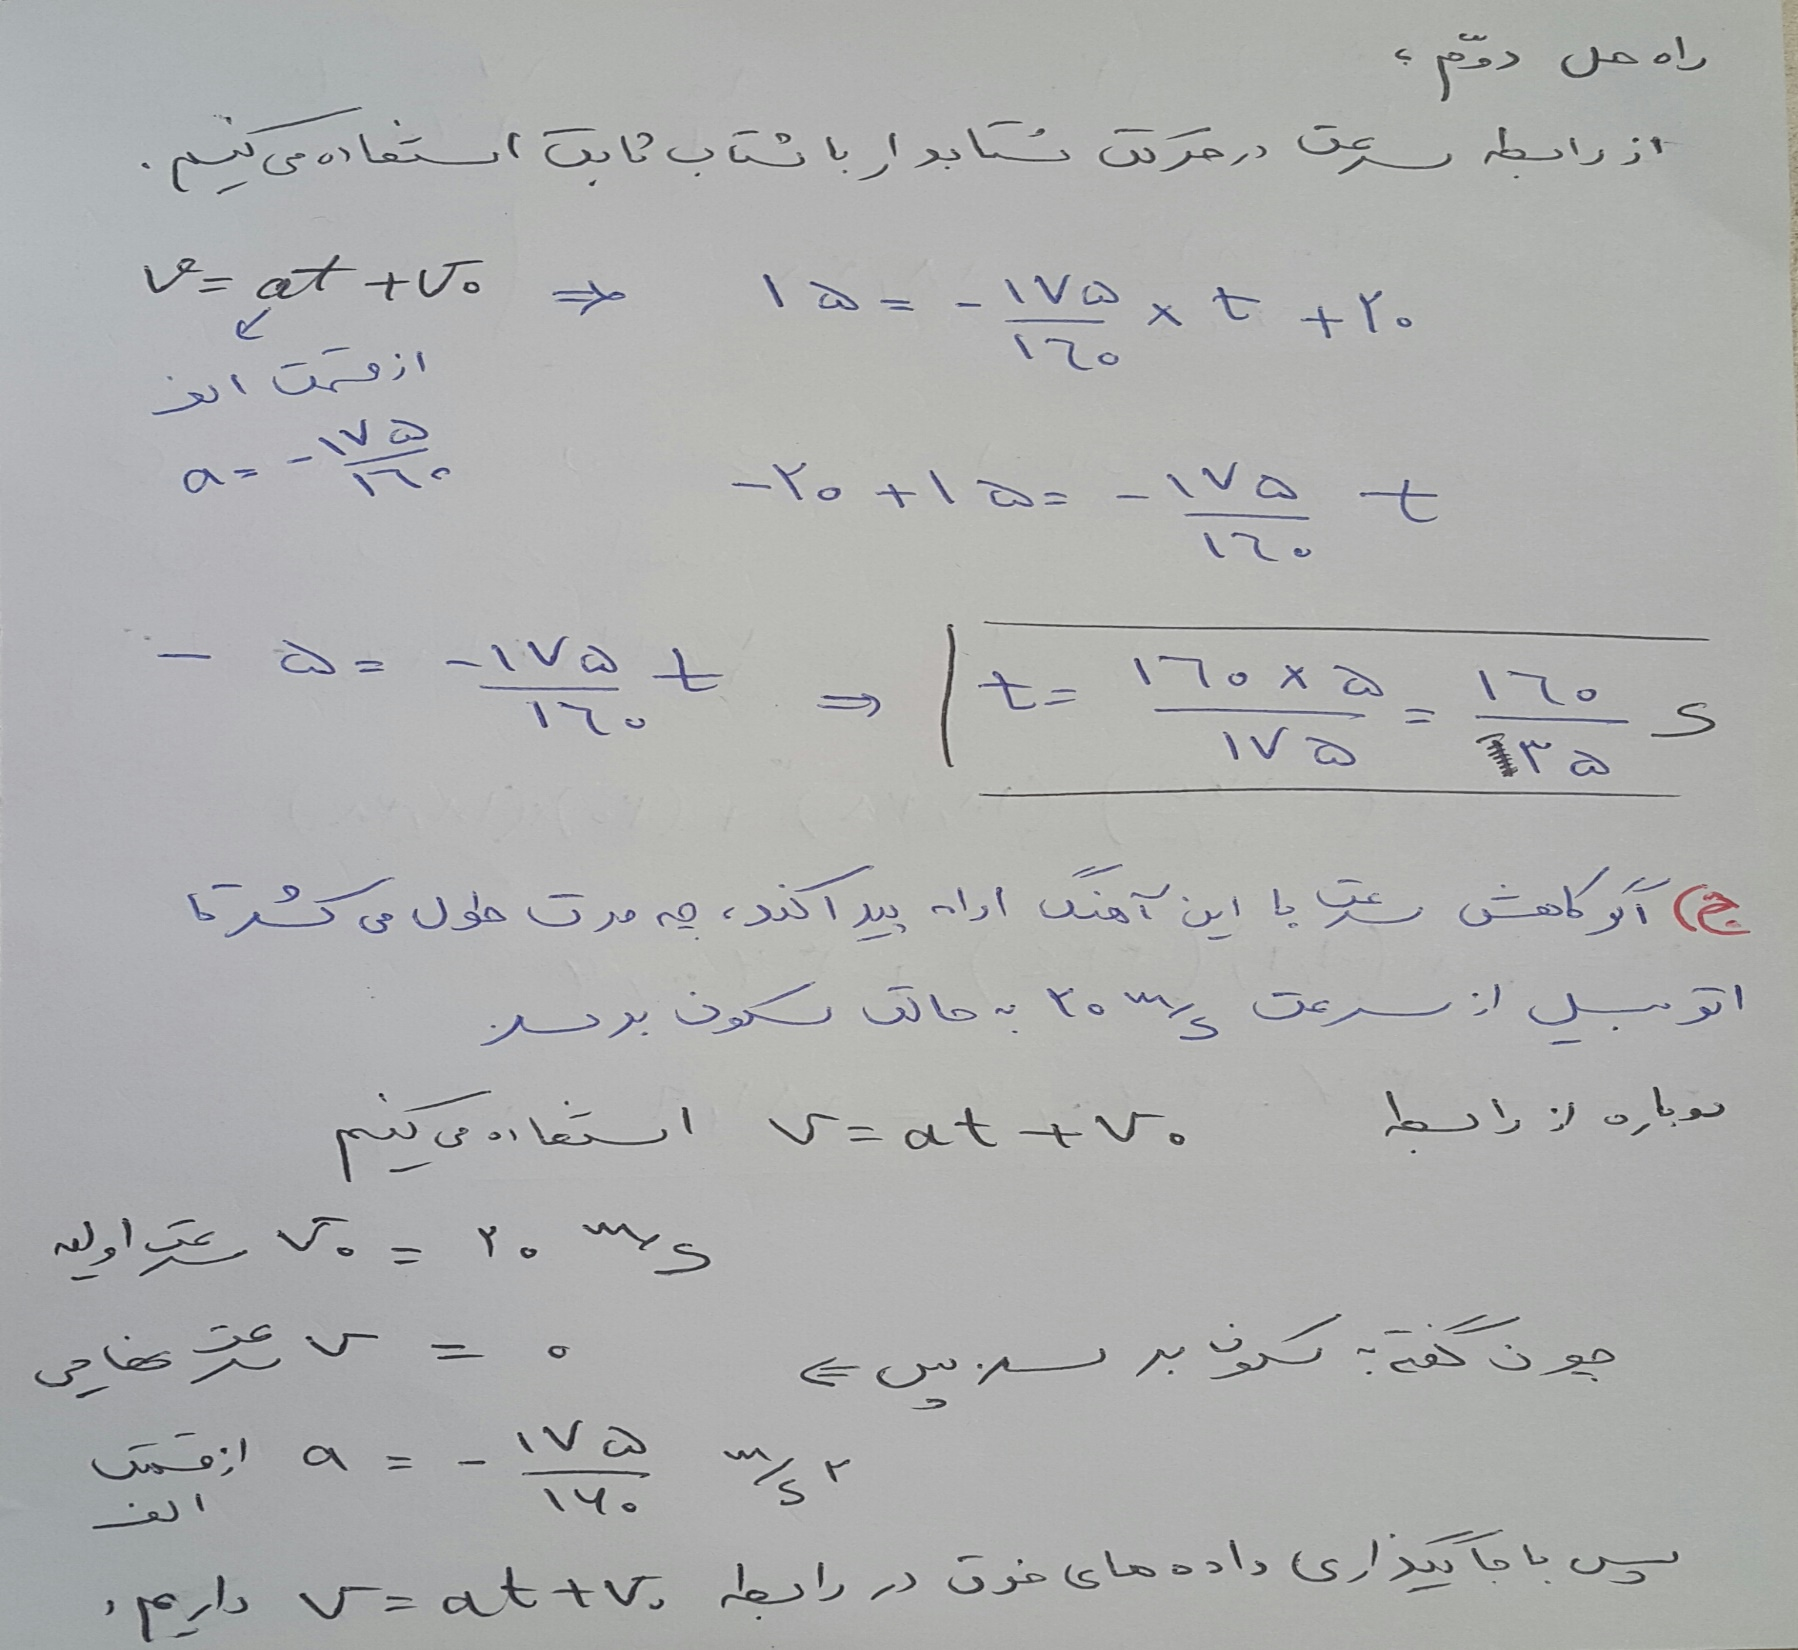 راه حل دوّم ؛
از رابطه سرعت در حرکت شتابدار با شتاب ثابت استفاده می کنیم.
v = at + v₀ ⇒ ۱۵ = - ۱۷۵/۱۶۰ × t + ۲۰
از قسمت الف
a = - ۱۷۵/۱۶۰
-۲۰ + ۱۵ = - ۱۷۵/۱۶۰ t
- ۵ = - ۱۷۵/۱۶۰ t ⇒ t = ۱۶۰ × ۵/۱۷۵ = ۱۶۰/۳۵ s
ج) اگر کاهش سرعت با این آهنگ ادامه پیدا کند، چه مدت طول می کشد تا
اتومبیل از سرعت ۲۰ m/s به حالت سکون برسد.
دوباره از رابطه v = at + v₀ استفاده می کنیم
سرعت اولیه v₀ = ۲۰ m/s
سرعت نهایی v = ۰ ⇐ چون گفته به سکون برسد پس
از قسمت الف a = - ۱۷۵/۱۶۰ m/s۲
پس با جاگیذاری داده های فوق در رابطه v = at + v₀ داریم،